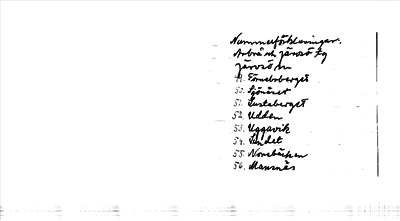 Nummerförklaringar.
Arbrå och Järvsö Lg
Järvsö sn
49. Förnebsberget
50. Sjönäset
51. Gustaberget
52. Udden
53. Uggavik
54. Sundet
55. Norrbäcken
56. Mansnäs